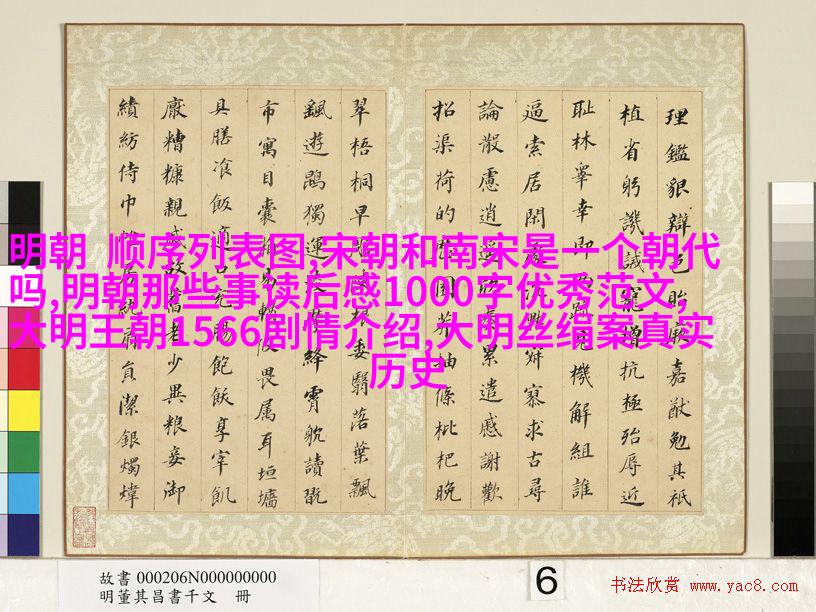 理鑑貌辯色貽厥嘉猷勉其祗
植省躬譏誡寵增抗極殆辱近
耻林睾幸即兩疏見機解組誰
逼索居閑處沉默寂寥求古尋
論散慮逍遥欣奏累遣慼謝歡
招渠荷的歷園莽抽條枇杷晚
翠梧桐早凋陳根委翳落葉飄
飖遊鵾獨運凌摩絳霄躭讀翫
市寓目囊箱易輶攸畏属耳垣墻
具膳飡飯適口充腸飽飫享宰飢
厭糟糠親戚故舊老少異粮妾御
績紡侍巾帷房紈扇員潔銀燭煒
明朝 顺序列表图,宋朝和南宋是一个朝代
吗,明朝那些事读后感1000字优秀范文,
大明王朝1566剧情介绍,大明丝绢案真实
历史
故書 000206N000000000
明董其昌書千文 冊
6
书法欣赏 www.yac8.com